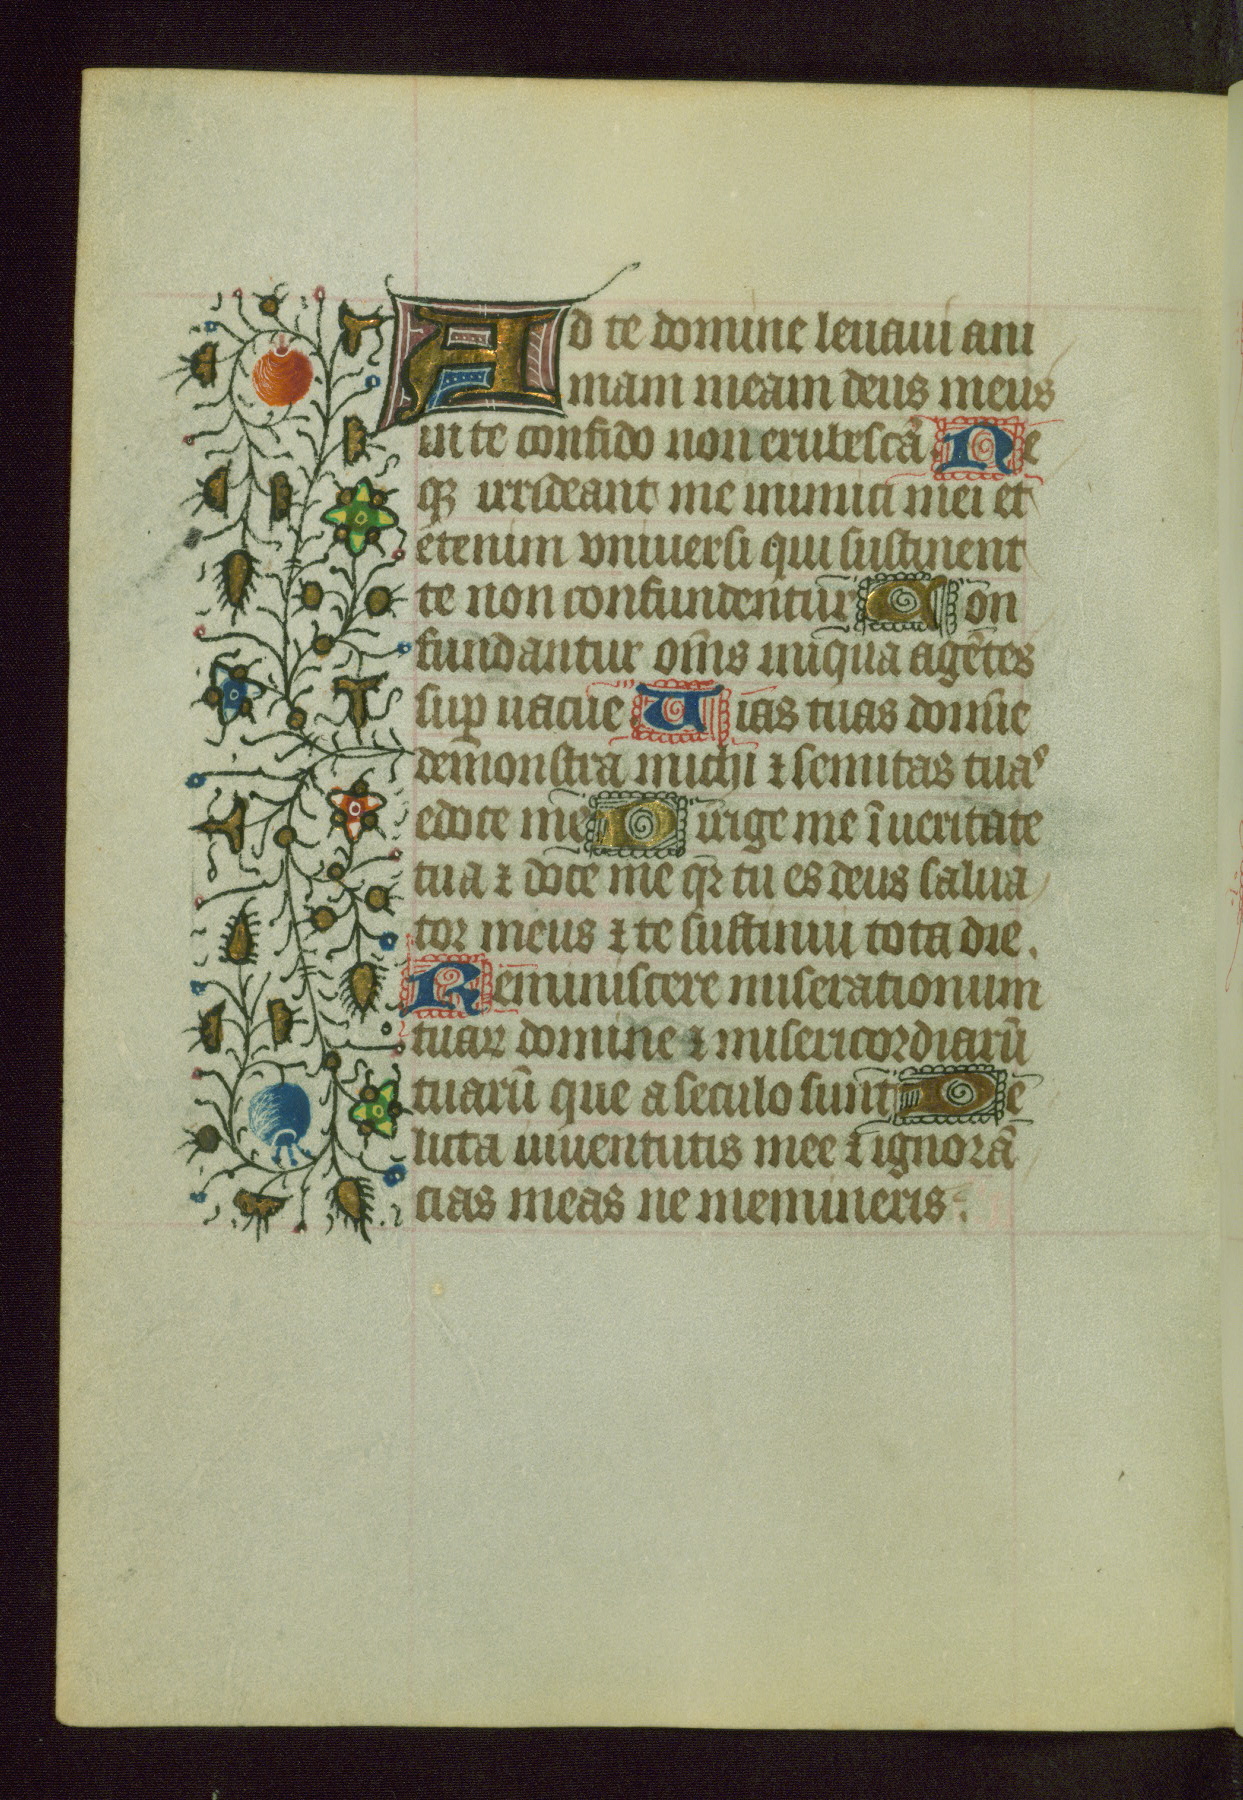 Ad te domine leuaui ani
mam meam deus meus
in te confido non erubescā Ne
qꝫ irrideant me inimici mei et
etenim vniuersi qui sustinent
te non confundentur Con
fundantur om̄s iniqua agētes
suꝑ uacue Uias tuas domīe
demonstra michi ⁊ semitas tuas
edoce me Dirige me ī ueritate
tua ⁊ doce me qꝛ tu es deus salua
tor meus ⁊ te sustinui tota die .
Reminiscere miserationum
tuaꝝ domine ⁊ misericordiarū
tuarū que a seculo sunt De
licta iuuentutis mee ⁊ ignorā
cias meas ne memineris .